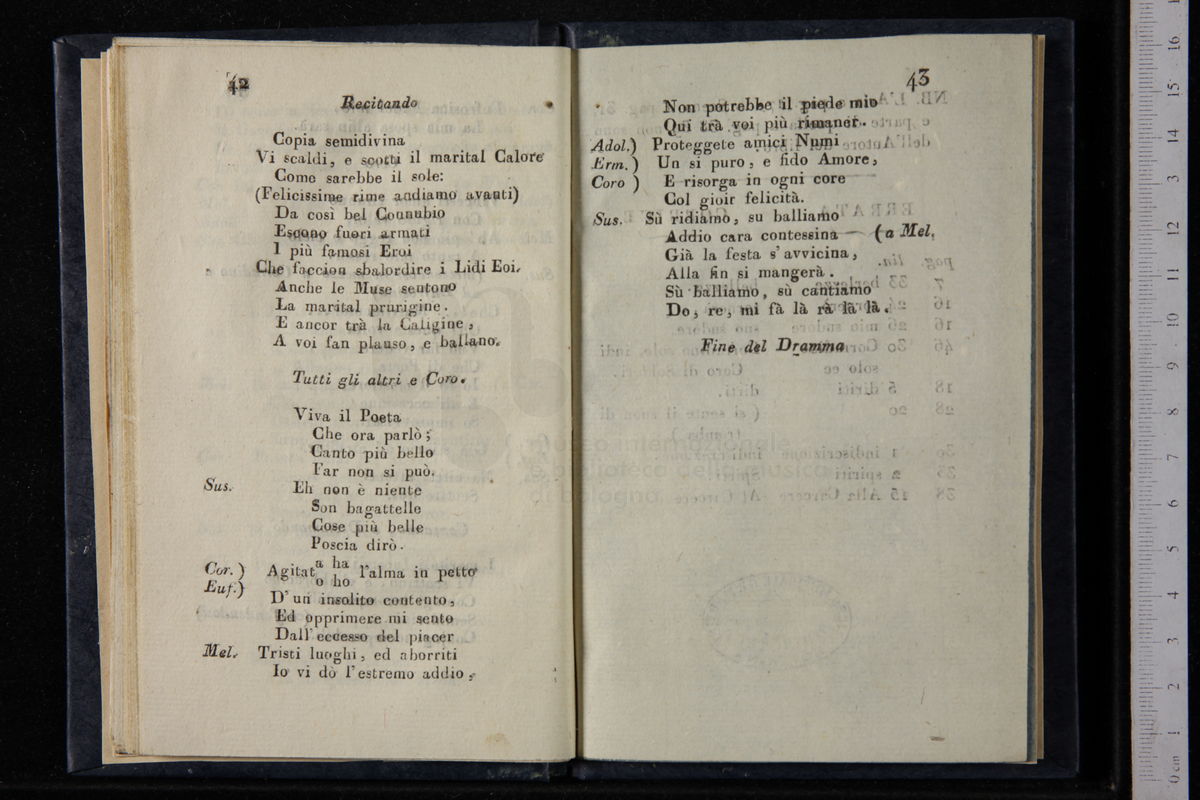 42
Recitando
Copia semidivina
Vi scaldi, e scotti il marital Calore
Come sarebbe il sole:
(Felicissime rime andiamo avanti)
Da così bel Connubio
Escono fuori armati
I più famosi Eroi
Che faccion sbalordire i Lidi Eoi.
Anche le Muse sentono
La marital prurigine.
E ancor trà la Caligine,
A voi fan plauso, e ballano.
Tutti gli altri e Coro.
Viva il Poeta
Che ora parlò;
Canto più bello
Far non si può.
Sus. Eh non è niente
Son bagattelle
Cose più belle
Poscia dirò.
Cor.) Agitat a ha l'alma in petto
Euf.) o ho
D'un insolito contento,
Ed opprimere mi sento
Dall'eccesso del piacer
Mel. Tristi luoghi, ed aborriti
Io vi dò l'estremo addio,
43
Non potrebbe il piede mio
Qui trà voi più rimaner.
Adol.) Proteggete amici Numi
Erm.) Un sì puro, e fido Amore,
Coro ) E risorga in ogni core
Col gioir felicità.
Sus. Sù ridiamo, su balliamo
Addio cara contessina — (a Mel.
Già la festa s'avvicina,
Alla fin si mangerà.
Sù balliamo, sù cantiamo
Do, re, mi fà là rà là là.
Fine del Dramma
museo internazionale
e biblioteca della musica
di bologna
0 cm 1 2 3 4 5 6 7 8 9 10 11 12 13 14 15 16